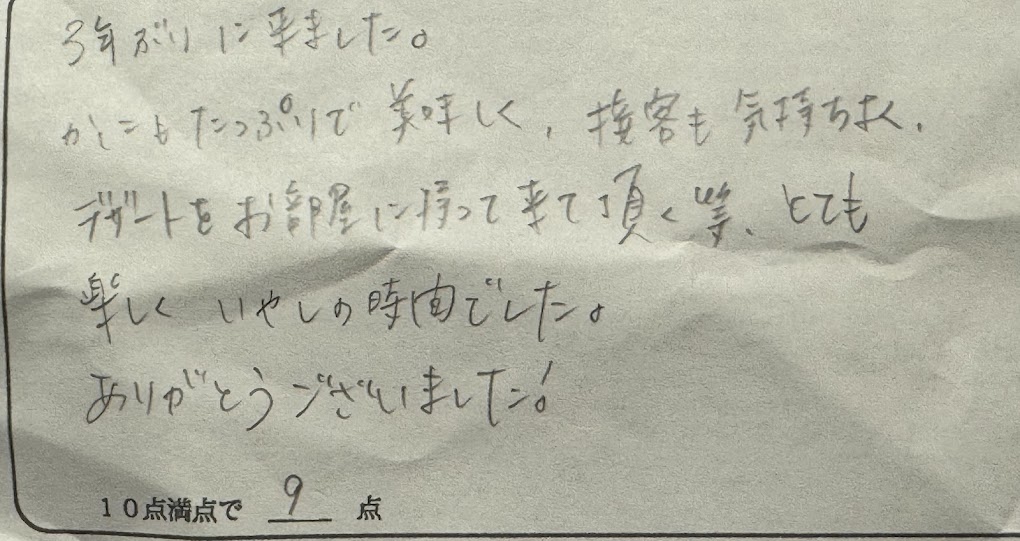 3年ぶりに来ました。
かにもたっぷりで美味しく、接客も気持ちよく、
デザートをお部屋に持って来て頂く等、とても
楽しくいやしの時間でした。
ありがとうございました!
10点満点で 9 点